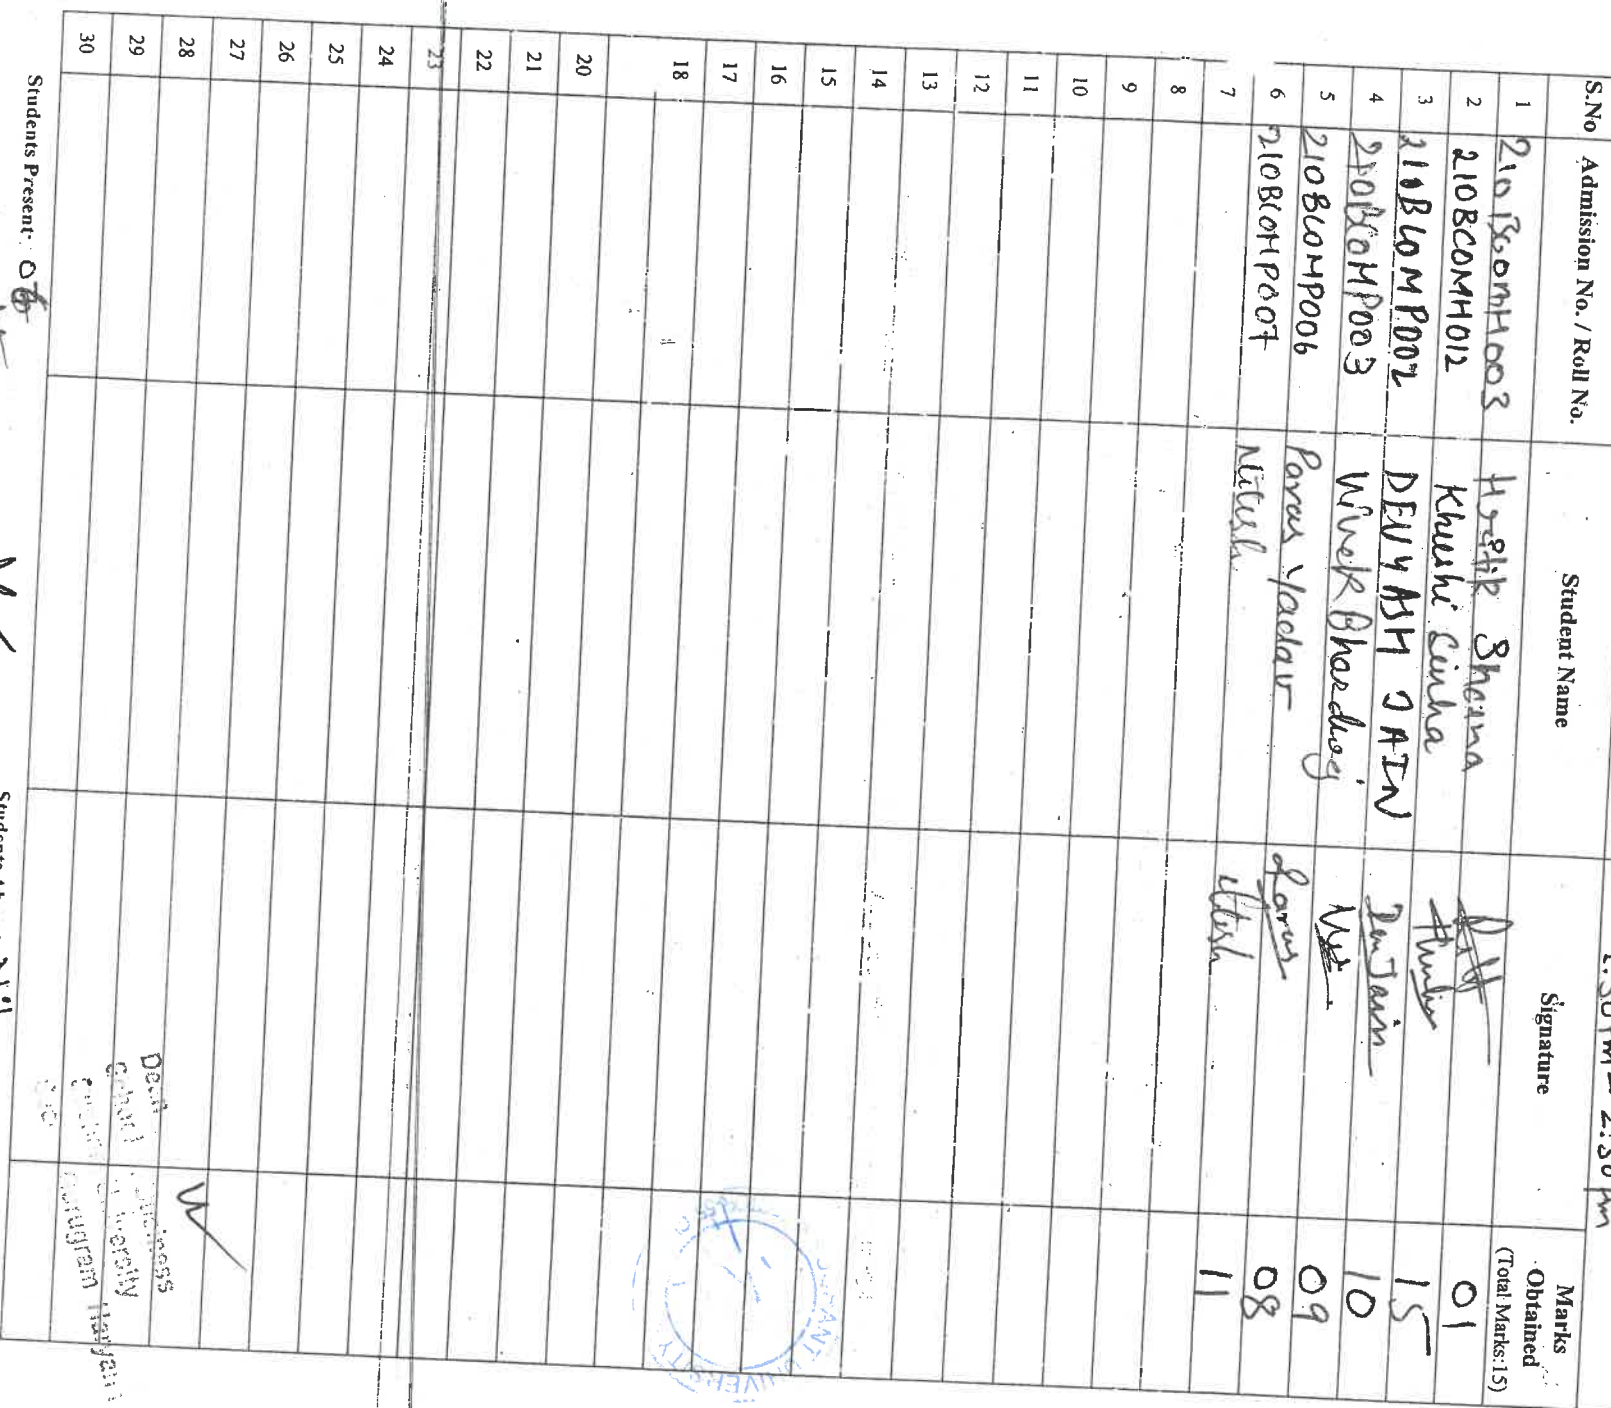 1:30 PM - 2:30 PM
S.No Admission No. / Roll No. Student Name Signature Marks Obtained (Total Marks:15)
1 210BComH003 Hrithik Sharma 01
2 210BCOMH012 Khushi Sinha 15
3 210BCOMP002 DEVYASH JAIN Dev Jain 10
4 210BCOMP003 Vivek Bhardwaj 09
5 210BCOMP006 Paras Yadav Paras 08
6 210BCOMP007 Nitish Nitish 11
7
8
9
10
11
12
13
14
15
16
17
18
20
21
22
23
24
25
26
27
28
29
30
Students Present: 06
Nil
Dean
School Business
University
Gurugram Haryana
UNIVERSITY